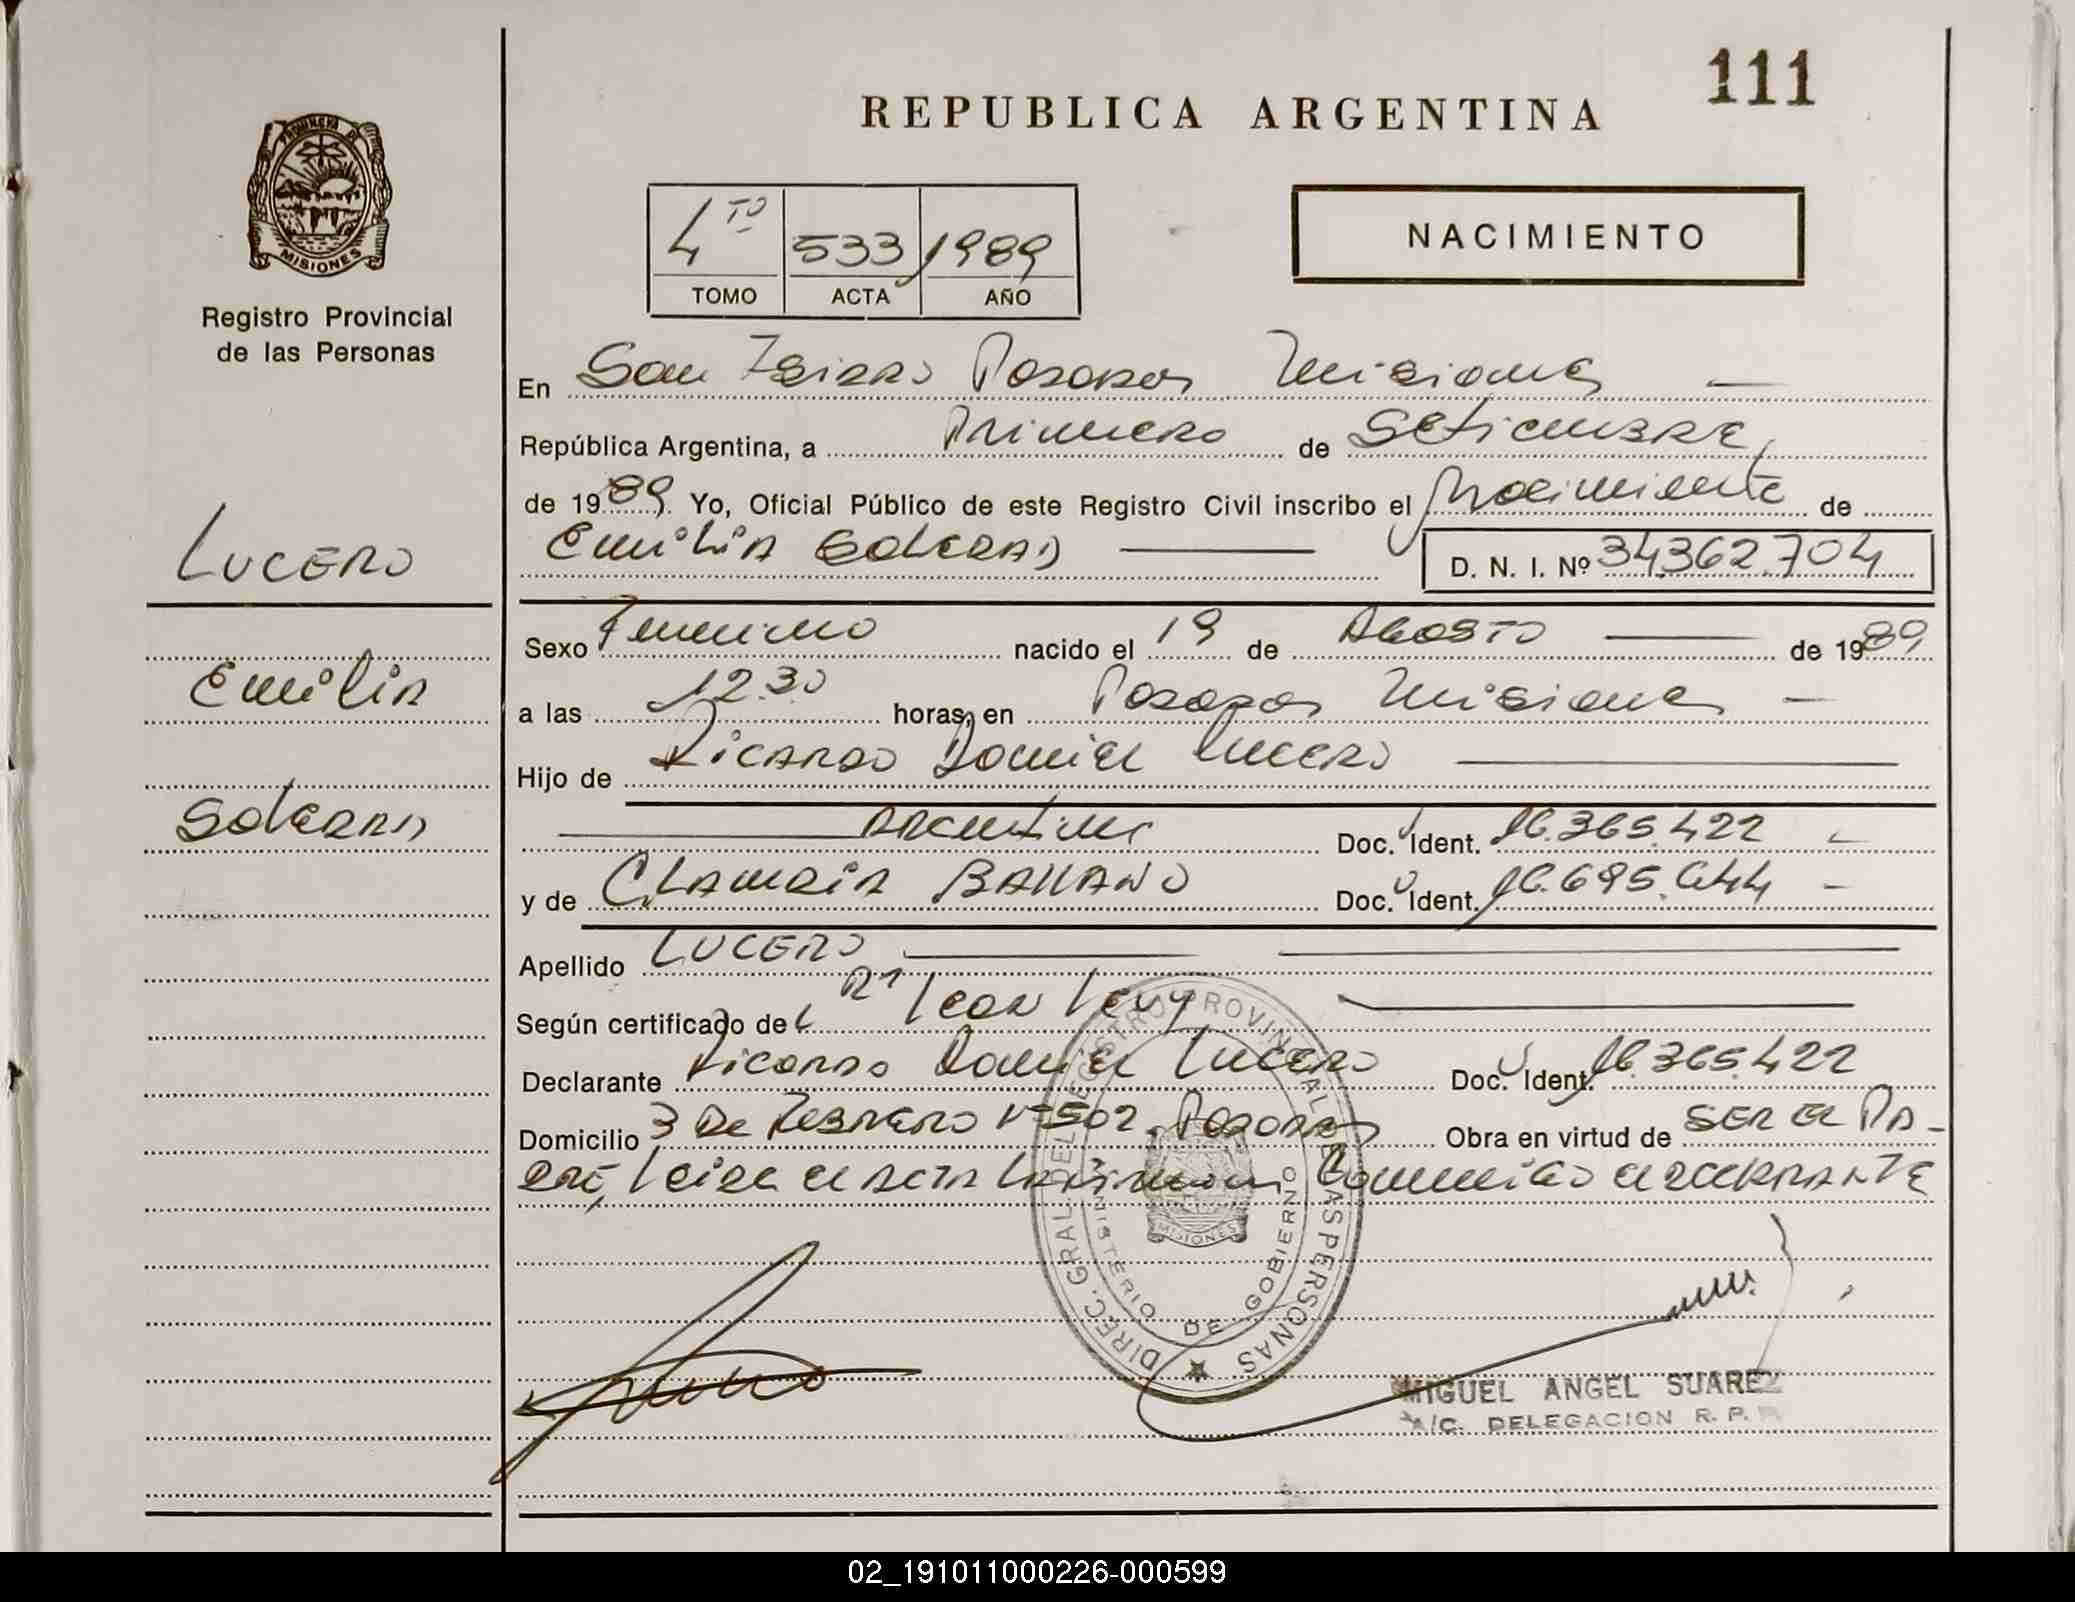 111
REPUBLICA ARGENTINA
PROVINCIA DE
MISIONES
Registro Provincial
de las Personas
4TO 533 1989
TOMO ACTA AÑO
NACIMIENTO
En San Isidro Posadas Misiones
República Argentina, a Primero de Setiembre,
de 1989 Yo, Oficial Público de este Registro Civil inscribo el Nacimiento de
Emilia Soledad
D. N. I. Nº 34.362.704
LUCERO
Emilia
Soledad
Sexo Femenino nacido el 19 de Agosto de 1989
a las 12.30 horas, en Posadas Misiones
Hijo de Ricardo Daniel Lucero
Argentino Doc. Ident. 16.365.422
y de Claudia BALLANO Doc. Ident. 16.695.644
Apellido LUCERO
Según certificado del Dr Leon Levy
Declarante Ricardo Daniel Lucero Doc. Ident. 16.365.422
Domicilio 3 De Febrero Nº 502. Posadas Obra en virtud de SER EL PA-
DRE, Leida el acta la firma Conmigo el declarante
DIREC. GRAL DEL REGISTRO PROVINCIAL DE LAS PERSONAS
MINISTERIO DE GOBIERNO
MISIONES
MIGUEL ANGEL SUAREZ
A/C. DELEGACION R. P.
02_191011000226-000599